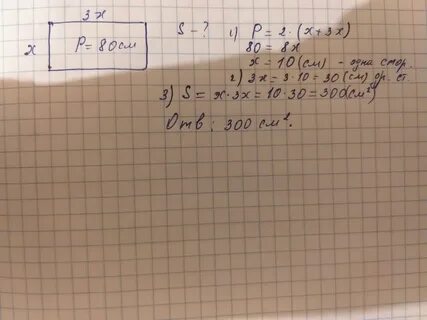 3x
x
P = 80 см
S - ?
1) P = 2 · (x + 3x)
80 = 8x
x = 10 (см) - одна стор.
2) 3x = 3 · 10 = 30 (см) др. ст.
3) S = x · 3x = 10 · 30 = 300 (см²)
Отв : 300 см².